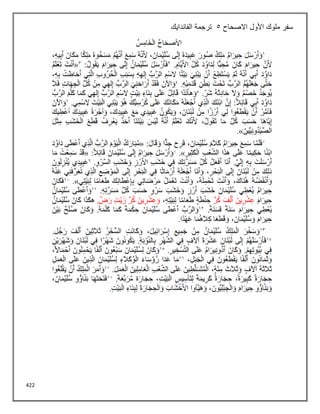 سفر ملوك الأول الاصحاح ٥ ترجمة الفاندايك
اَلأَصْحَاحُ الْخَامِسُ
١وَأَرْسَلَ حِيرَامُ مَلِكُ صُورَ عَبِيدَهُ إِلَى سُلَيْمَانَ، لأَنَّهُ سَمِعَ أَنَّهُمْ مَسَحُوهُ مَلِكًا مَكَانَ أَبِيهِ،
لأَنَّ حِيرَامَ كَانَ مُحِبًّا لِدَاوُدَ كُلَّ الأَيَّامِ. ٢فَأَرْسَلَ سُلَيْمَانُ إِلَى حِيرَامَ يَقُولُ: ٣«أَنْتَ تَعْلَمُ
دَاوُدَ أَبِي أَنَّهُ لَمْ يَسْتَطِعْ أَنْ يَبْنِيَ بَيْتًا لاسْمِ الرَّبِّ إِلهِهِ بِسَبَبِ الْحُرُوبِ الَّتِي أَحَاطَتْ بِهِ،
حَتَّى جَعَلَهُمُ الرَّبُّ تَحْتَ بَطْنِ قَدَمَيْهِ. ٤وَالآنَ فَقَدْ أَرَاحَنِيَ الرَّبُّ إِلهِي مِنْ كُلِّ الْجِهَاتِ فَلاَ
يُوجَدُ خَصْمٌ وَلاَ حَادِثَةُ شَرّ. ٥وَهأَنَذَا قَائِلٌ عَلَى بِنَاءِ بَيْتٍ لاسْمِ الرَّبِّ إِلهِي كَمَا كَلَّمَ الرَّبُّ
دَاوُدَ أَبِي قَائِلاً: إِنَّ ابْنَكَ الَّذِي أَجْعَلُهُ مَكَانَكَ عَلَى كُرْسِيِّكَ هُوَ يَبْنِي الْبَيْتَ لاسْمِي. ٦وَالآنَ
فَأْمُرْ أَنْ يَقْطَعُوا لِي أَرْزًا مِنْ لُبْنَانَ، وَيَكُونُ عَبِيدِي مَعَ عَبِيدِكَ، وَأُجْرَةُ عَبِيدِكَ أُعْطِيكَ
إِيَّاهَا حَسَبَ كُلِّ مَا تَقُولُ، لأَنَّكَ تَعْلَمُ أَنَّهُ لَيْسَ بَيْنَنَا أَحَدٌ يَعْرِفُ قَطْعَ الْخَشَبِ مِثْلَ
الصِّيدُونِيِّينَ».
٧فَلَمَّا سَمِعَ حِيرَامُ كَلاَمَ سُلَيْمَانَ، فَرِحَ جِدًّا وَقَالَ: «مُبَارَكٌ الْيَوْمَ الرَّبُّ الَّذِي أَعْطَى دَاوُدَ
ابْنًا حَكِيمًا عَلَى هذَا الشَّعْبِ الْكَثِيرِ». ٨وَأَرْسَلَ حِيرَامُ إِلَى سُلَيْمَانَ قَائِلاً: «قَدْ سَمِعْتُ مَا
أَرْسَلْتَ بِهِ إِلَيَّ. أَنَا أَفْعَلُ كُلَّ مَسَرَّتِكَ فِي خَشَبِ الأَرْزِ وَخَشَبِ السَّرْوِ. ٩عَبِيدِي يُنْزِلُونَ
ذلِكَ مِنْ لُبْنَانَ إِلَى الْبَحْرِ، وَأَنَا أَجْعَلُهُ أَرْمَاثًا فِي الْبَحْرِ إِلَى الْمَوْضِعِ الَّذِي تُعَرِّفُنِي عَنْهُ
وَأَنْفُضُهُ هُنَاكَ، وَأَنْتَ تَحْمِلُهُ، وَأَنْتَ تَعْمَلُ مَرْضَاتِي بِإِعْطَائِكَ طَعَامًا لِبَيْتِي». ١٠فَكَانَ
حِيرَامُ يُعْطِي سُلَيْمَانَ خَشَبَ أَرْزٍ وَخَشَبَ سَرْوٍ حَسَبَ كُلِّ مَسَرَّتِهِ. ١١وَأَعْطَى سُلَيْمَانُ
حِيرَامَ عِشْرِينَ أَلْفَ كُرِّ حِنْطَةٍ طَعَامًا لِبَيْتِهِ، وَعِشْرِينَ كُرَّ زَيْتِ رَضٍّ. هكَذَا كَانَ سُلَيْمَانُ
يُعْطِي حِيرَامَ سَنَةً فَسَنَةً. ١٢وَالرَّبُّ أَعْطَى سُلَيْمَانَ حِكْمَةً كَمَا كَلَّمَهُ. وَكَانَ صُلْحٌ بَيْنَ
حِيرَامَ وَسُلَيْمَانَ، وَقَطَعَا كِلاَهُمَا عَهْدًا.
١٣وَسَخَّرَ الْمَلِكُ سُلَيْمَانُ مِنْ جَمِيعِ إِسْرَائِيلَ، وَكَانَتِ السُّخَرُ ثَلاَثِينَ أَلْفَ رَجُل.
١٤فَأَرْسَلَهُمْ إِلَى لُبْنَانَ عَشْرَةَ آلاَفٍ فِي الشَّهْرِ بِالنَّوْبَةِ. يَكُونُونَ شَهْرًا فِي لُبْنَانَ وَشَهْرَيْنِ
فِي بُيُوتِهِمْ. وَكَانَ أَدُونِيرَامُ عَلَى التَّسْخِيرِ. ١٥وَكَانَ لِسُلَيْمَانَ سَبْعُونَ أَلْفًا يَحْمِلُونَ أَحْمَالاً،
وَثَمَانُونَ أَلْفًا يَقْطَعُونَ فِي الْجَبَلِ، ١٦مَا عَدَا رُؤَسَاءَ الْوُكَلاَءِ لِسُلَيْمَانَ الَّذِينَ عَلَى الْعَمَلِ
ثَلاَثَةَ آلاَفٍ وَثَلاَثَ مِئَةٍ، الْمُتَسَلِّطِينَ عَلَى الشَّعْبِ الْعَامِلِينَ الْعَمَلَ. ١٧وَأَمَرَ الْمَلِكُ أَنْ يَقْلَعُوا
حِجَارَةً كَبِيرَةً، حِجَارَةً كَرِيمَةً لِتَأْسِيسِ الْبَيْتِ، حِجَارَةً مُرَبَّعَةً. ١٨فَنَحَتَهَا بَنَّاؤُو سُلَيْمَانَ،
وَبَنَّاؤُو حِيرَامَ وَالْجِبْلِيُّونَ، وَهَيَّأُوا الأَخْشَابَ وَالْحِجَارَةَ لِبِنَاءِ الْبَيْتِ.
422